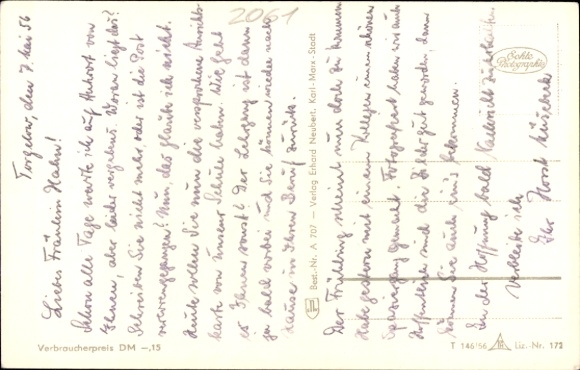 2061
Torgelow, den 7. Mai 56
Liebes Fräulein Hahn!
Schon alle Tage warte ich auf Antwort von
Ihnen, aber leider vergebens. Woran liegt das?
Schreiben Sie nicht mehr, oder ist die Post
verlorengegangen? Nun, das glaube ich nicht.
Heute sollen Sie nun die versprochene Ansichts-
karte von unserer Schule haben. Wie geht
es Ihnen sonst? Der Lehrgang ist dann
ja bald vorbei und Sie können wieder nach
Hause in Ihren Beruf zurück.
Der Frühling scheint nun doch zu kommen.
Habe gestern mit einem Kollegen einen schönen
Spaziergang gemacht. Fotografiert haben wir auch.
Hoffentlich sind die Bilder gut geworden, dann
können Sie auch eins bekommen.
In der Hoffnung bald Nachricht zu erhalten,
verbleibe ich
Ihr Horst
Echte Photographie
Best.-Nr. A 707 - Verlag Erhard Neubert, Karl-Marx-Stadt
Verbraucherpreis DM -,15
T 146/56 Liz.-Nr. 172